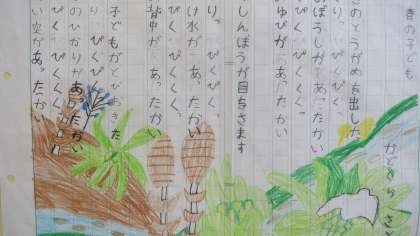 きのこども
かどくら さと
きのとうがめを出した
り。ぴくぴく。
のぼうしがあったかい
ぴくくく。
おゆびが あったかい
しんぼうが目をさます
り。ぴくぴく。
け水が あったかい
ぴくくく。
背中が あったかい
子どもがとびおきた
り ぴくぴく
ぴくくく。
のひかりが あったかい
ぴくくく
い空が あったかい